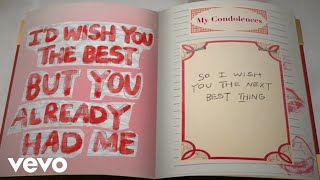 I'D WISH YOU
THE BEST
BUT YOU
ALREADY
HAD ME
My Condolences
SO I WISH
YOU THE NEXT
BEST THING.
vevo